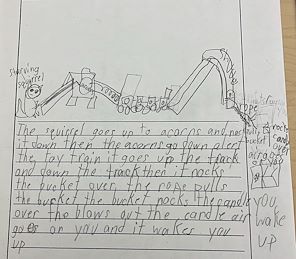 starving
squirrel
rope
The squirrel goes up to acorns and
it down then the acorns go down alert
the toy train it goes up the track
and down the track then it nocks
the bucket over the rope pulls
the bucket the bucket nocks the candle
over the blows out the candle air
goes or you and it wakes you
up
nocks
candle
over
you
wake
up